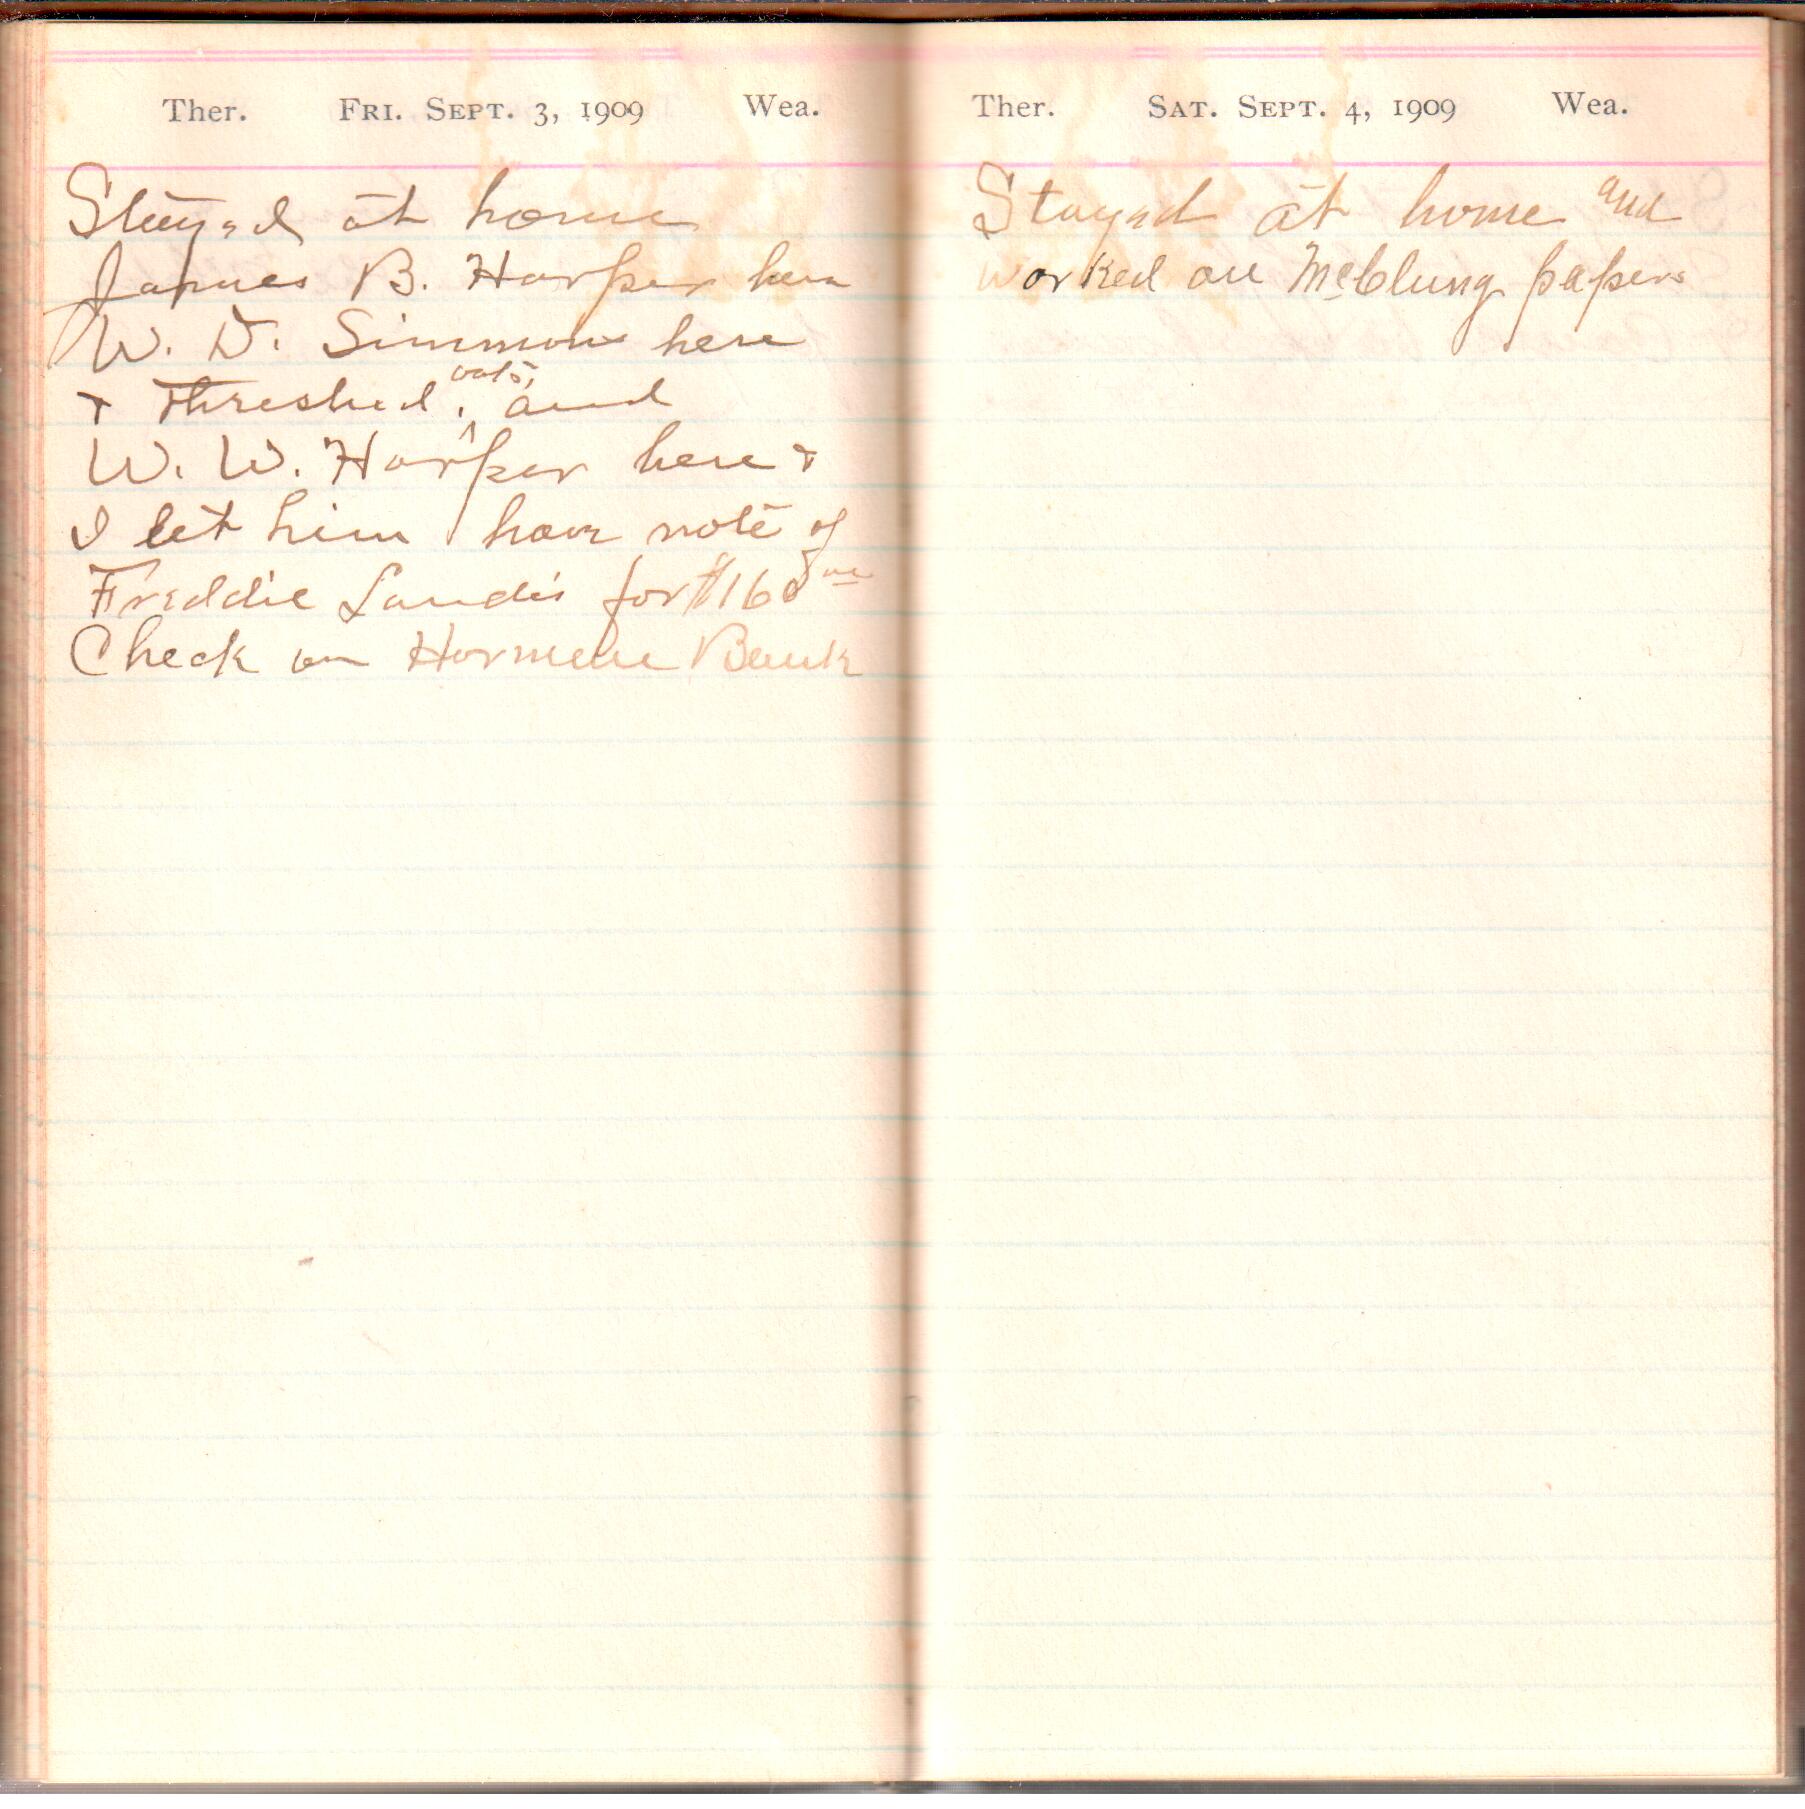 Ther. FRI. SEPT. 3, 1909 Wea.
Stayed at home
James B. Harper here
W. D. Simmons here
+ Threshed oats, and
W. W. Harper here +
I let him have note of
Freddie Landis for $160
Check on Bank
Ther. SAT. SEPT. 4, 1909 Wea.
Stayed at home and
worked on McClung papers